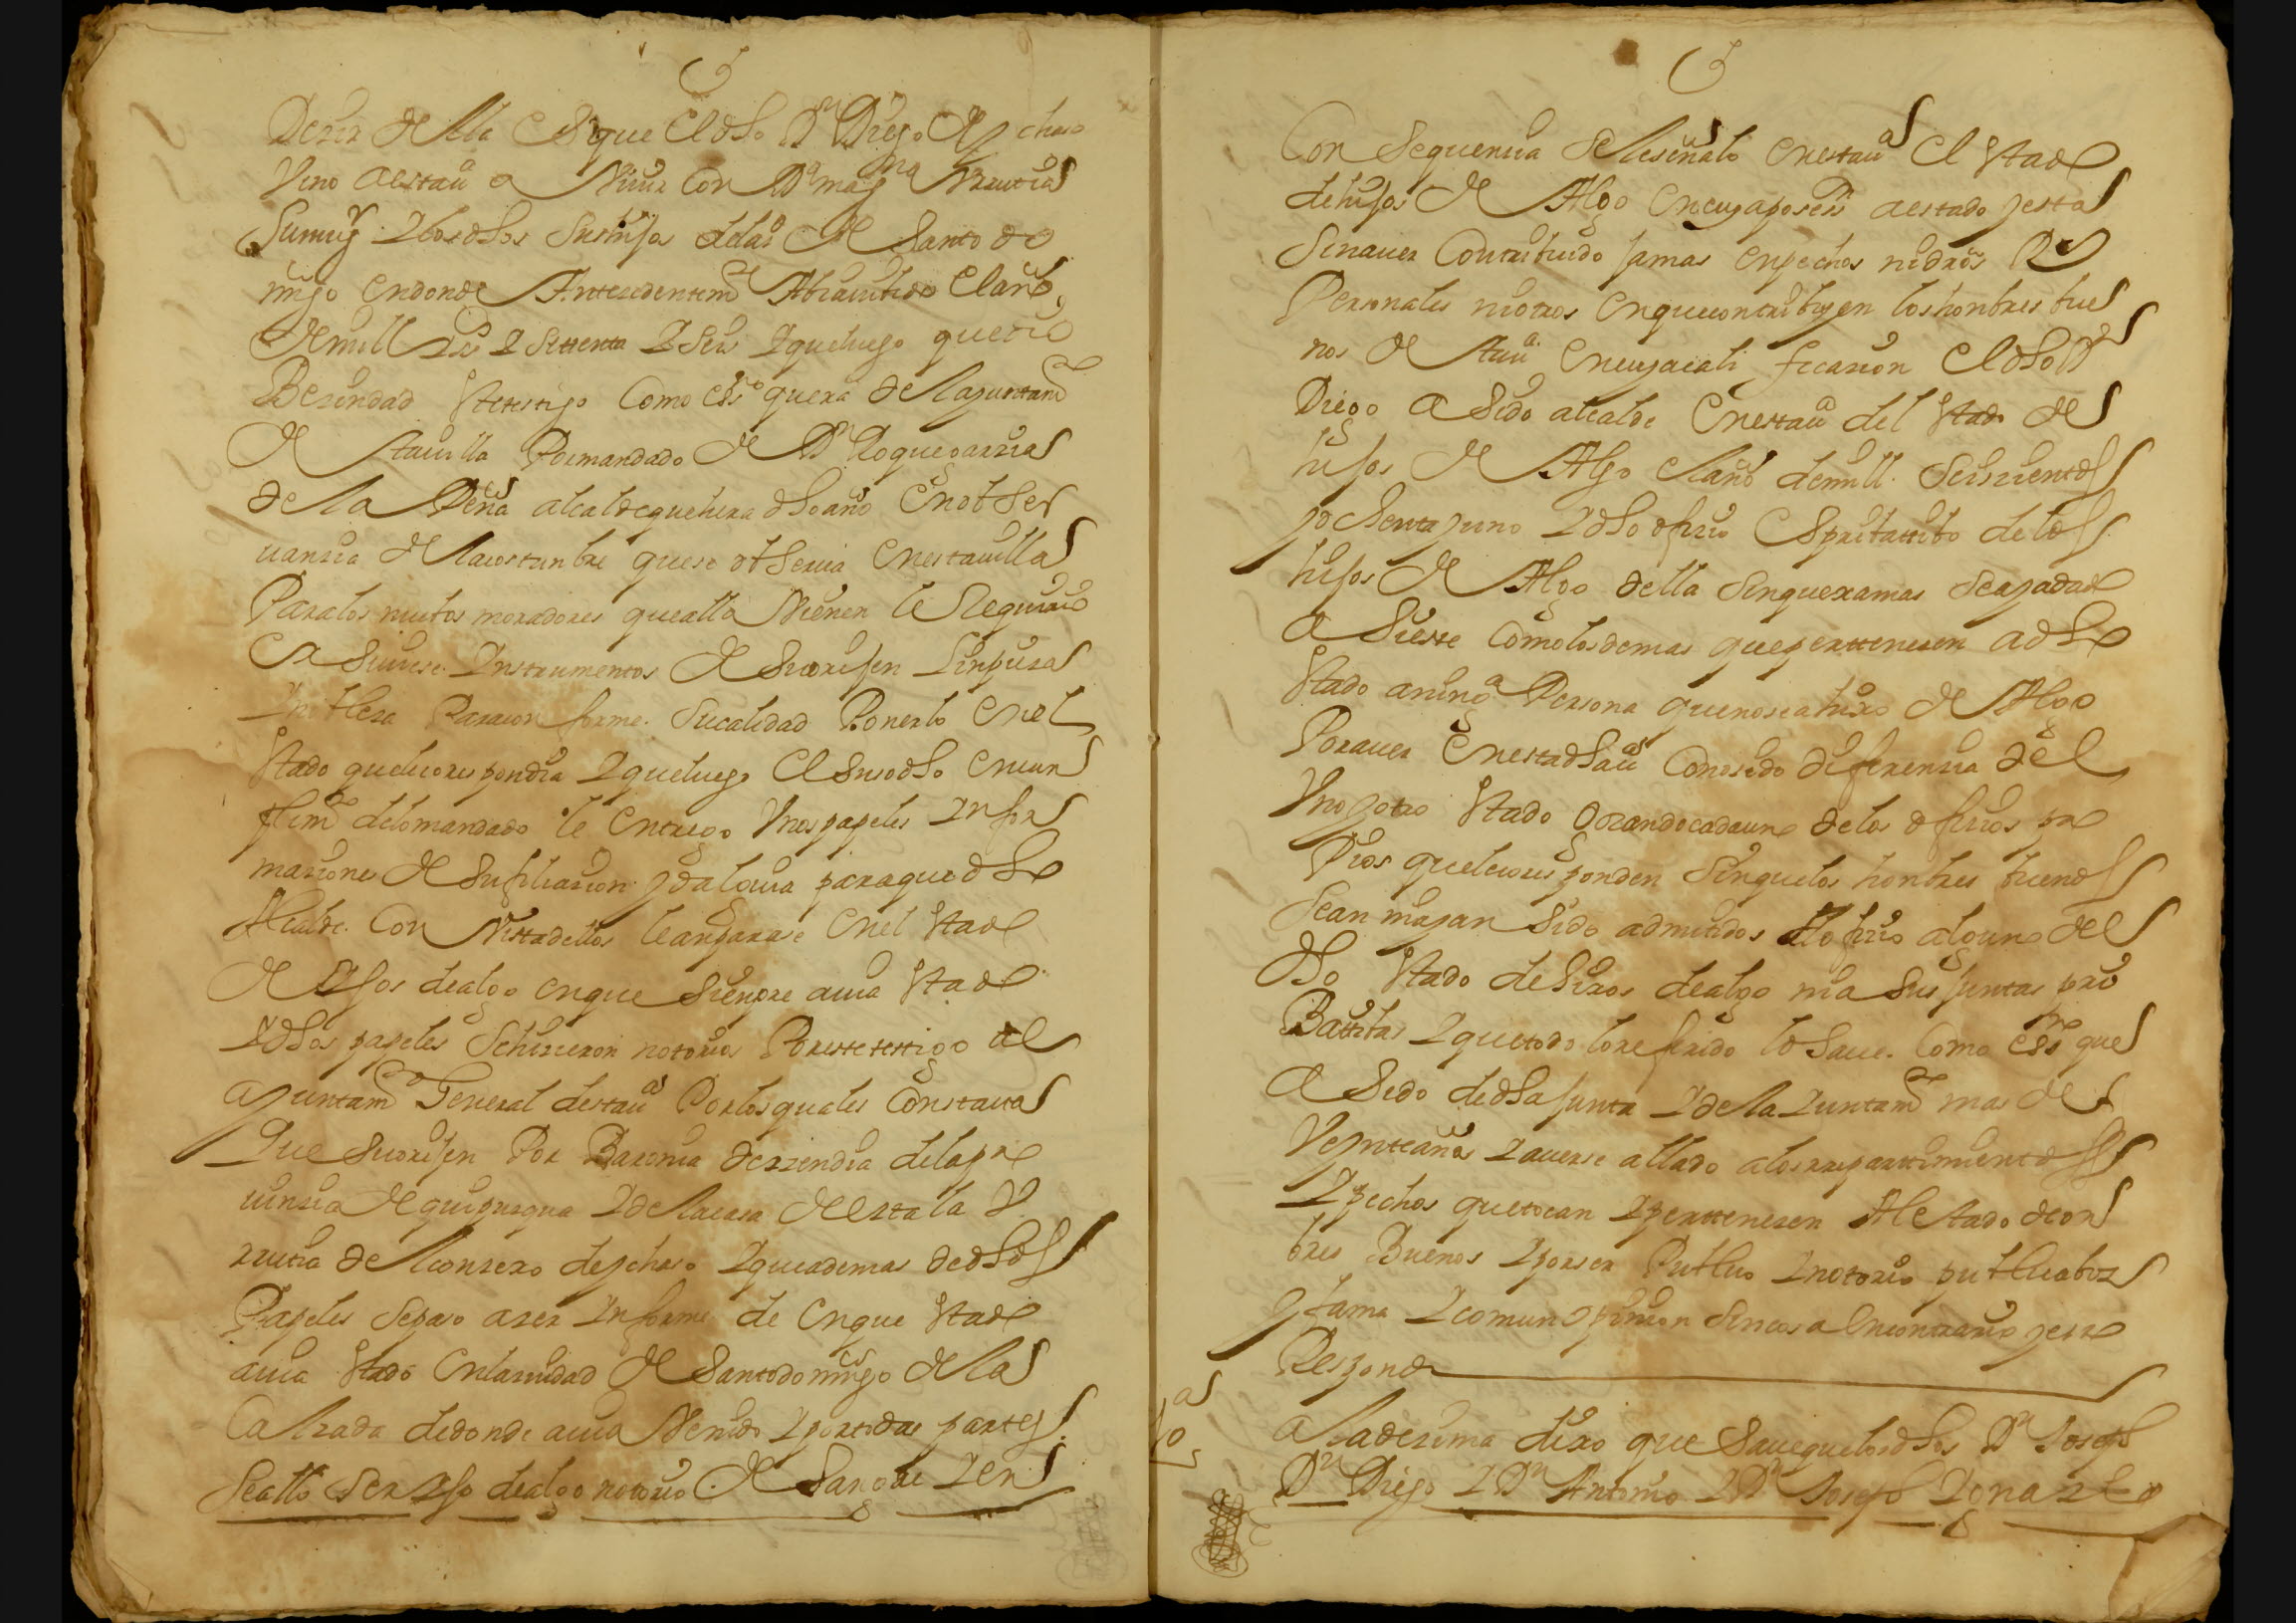 Dezir della Es que El dho Dn Diego de ychaso
Vino aestau a Viuir Con Da Magna Vrrutia
Sumugr Y los dhos Sus hijos dela d de Santo do
mingo endonde Antezedentemte Abia uibido El año
de mill Ss Y Settenta Y Seis Y que luego que
Bezindad Este testigo Como essno que era de la juntamto
de Sta uilla Por mandado de Dn Roque garzia
de la Peña alcalde que hera dho año En obser
uanzia de la costunbre que se obserua En esta uilla
Para los nuebos moradores que a ella Vienen le Requirio
Exsiuiese Ynstrumentos de Su orijen Linpieza
Y nobleza Para con forme Su calidad Ponerlo En el
Stado que le corespondia Y que luego El suso dho En cun
plimto de lo mandado le Entrego Vnos papeles Ynfor
maziones de Su filiazion y dalguia para que dho
Alcalde Con Vista dellos le anparase En el Stado
de Yjos dealgo en que Sienpre auia Stado
Y dhos papeles Se hizieron notorios Por este testigo al
ayuntamto General de stau Por los quales Constaua
Que Su orijen Por Baronia deszendia de la pro
uinzia de guipuzqua Y de la casa de Eztala V
rrutia de Conzexo de ychaso Y que ademas de dhos
Papeles Se paso azer Ynforme de En que Stado
auia Stado En la ziudad de Santo domingo de la
Calzada de donde auia Venido Y por todas partes
Se allo Ser Yjo dealgo notorio de Sangre Y en
Con Sequenzia Se le señalo En estaua El Stado
de hijos de Algo En cuya posesn aestado y esta
Sin auer Contribuido jamas En pechos ni dros Rs
Personales ni otros En que contribuyen los honbres bue
nos de Stau En cuya cali ficazion El dho Dn
Diego a Sido alcalde En estaua del Stado de
hijos de Algo El año de mill Seiszientos
y ochenta y uno Y dho ofizio Es pribatibo de los
hijos de Algo della Sin que xamas Se aya dado
a Sierte Como los demas que pertenezen a dho
Stado a ninga Persona que no sea hixo de Algo
Por auer En esta dha uia Conosido diferenzia del
Vno y otro Stado gozando cada uno de los ofizios pro
Pios que le corresponden Sin que los honbres buenos
Sean ni ayan Sido admitidos Al ofizio alguno del
dho Stado de hixos dealgo ni a sus juntas pri
Batibas Y que todo lo referido lo Saue Como essno que
a Sido de dha junta Y de la Yuntamto mas de
Veynte años Y auerse allado a los rrepartimientos
Y pechos que tocan Y pertenezen Al estado de on
bres Buenos Y por ser Publico Y notorio publica boz
y fama Y comun opinion Sin cosa En contrario y esto
Responde
a la dezima dixo que Saue que los dhos Dn Joseph
Dn Diego Y Dn Antonio Y Dn Joseph Ygnazio